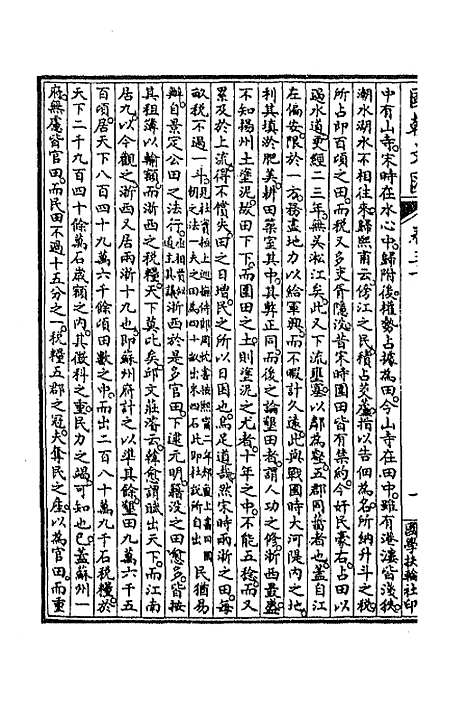 國朝文匯 卷三十 一 國學扶輪社印
中有山寺宋時在水心中歸附後權勢占據為田今山寺在田中雖有港漊皆淺狹
潮水湖水不相往來歸熙甫云傍江之民積占茭蘆指以告佃為名所納升斗之稅
所占即百頃之田而稅又多吏胥隱沒昔宋時圍田皆有禁約今奸民豪右占田以
遏水道更經二三年無吳淞江矣此又下流壅塞以鄰為壑五郡同菑者也蓋自江
左偏安限於一方務盡地力以給軍興而不暇計久遠此與戰國時大河隄內之地
利其填淤肥美耕田築室其中其弊正同而後之論墾田者謂人功之修浙西最盛
不知揚州土塗泥故田下下而圍田之土則塗泥之尤者十年之中不能五稔而又
累及於上流得不償失田之日增民之所以日困也烏足道哉然宋時兩浙之田每
畝稅不過一斗見杜宗桓上巡撫侍郎周忱書按熙寧二年郟亶上書曰國初之法一夫之田為四十畝出米四石此即杜說所自出民猶易
辦自景定公田之法行道主其議浙西於是多官田下逮元明籍沒之田愈多皆按
其租簿以輸額而浙西之稅糧天下莫比矣邱文莊濬云韓愈謂賦出天下而江南
居十九以今觀之浙西又居兩浙十九也即蘇州府計之以準其餘墾田九萬六千五
百頃居天下八百四十九萬六千餘頃田數之中而出二百八十萬九千石稅糧於
天下二千九百四十餘萬石歲額之內其徵科之重民力之竭可知也已蓋蘇州一
府無慮皆官田而民田不過十五分之一稅糧五郡之冠夫奪民之產以為官田而重